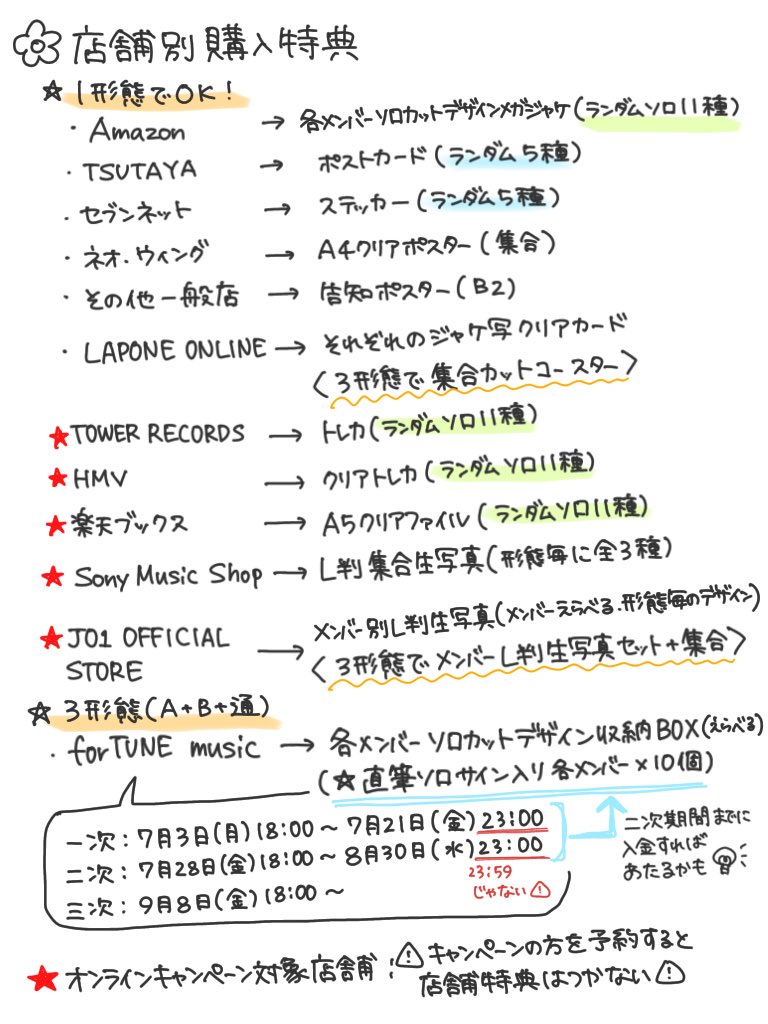 店舗別購入特典
☆ 1形態でOK!
・Amazon → 各メンバーソロカットデザインメガジャケ(ランダムソロ11種)
・TSUTAYA → ポストカード(ランダム5種)
・セブンネット → ステッカー(ランダム5種)
・ネオ・ウィング → A4クリアポスター(集合)
・その他一般店 → 告知ポスター(B2)
・LAPONE ONLINE → それぞれのジャケ写クリアカード
〈3形態で集合カットコースター〉
★TOWER RECORDS → トレカ(ランダムソロ11種)
★HMV → クリアトレカ(ランダムソロ11種)
★楽天ブックス → A5クリアファイル(ランダムソロ11種)
★Sony Music Shop → L判集合生写真(形態毎に全3種)
★JO1 OFFICIAL STORE → メンバー別L判生写真(メンバーえらべる.形態毎のデザイン)
〈3形態でメンバーL判生写真セット+集合〉
☆ 3形態(A+B+通)
・forTUNE music → 各メンバーソロカットデザイン収納BOX(えらべる)
(☆直筆ソロサイン入り各メンバー×10個)
一次:7月3日(月)18:00~7月21日(金)23:00
二次:7月28日(金)18:00~8月30日(水)23:00
23:59
じゃない⚠
三次:9月8日(金)18:00~
二次期間までに
入金すれば
あたるかも
★オンラインキャンペーン対象店舗:⚠キャンペーンの方を予約すると
店舗特典はつかない⚠